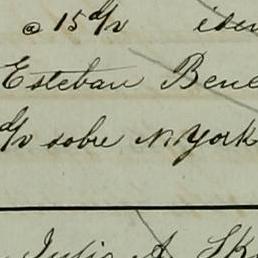 @ 15 d/v
Esteban Bene
d/v sobre N. York
Julio A. Sk